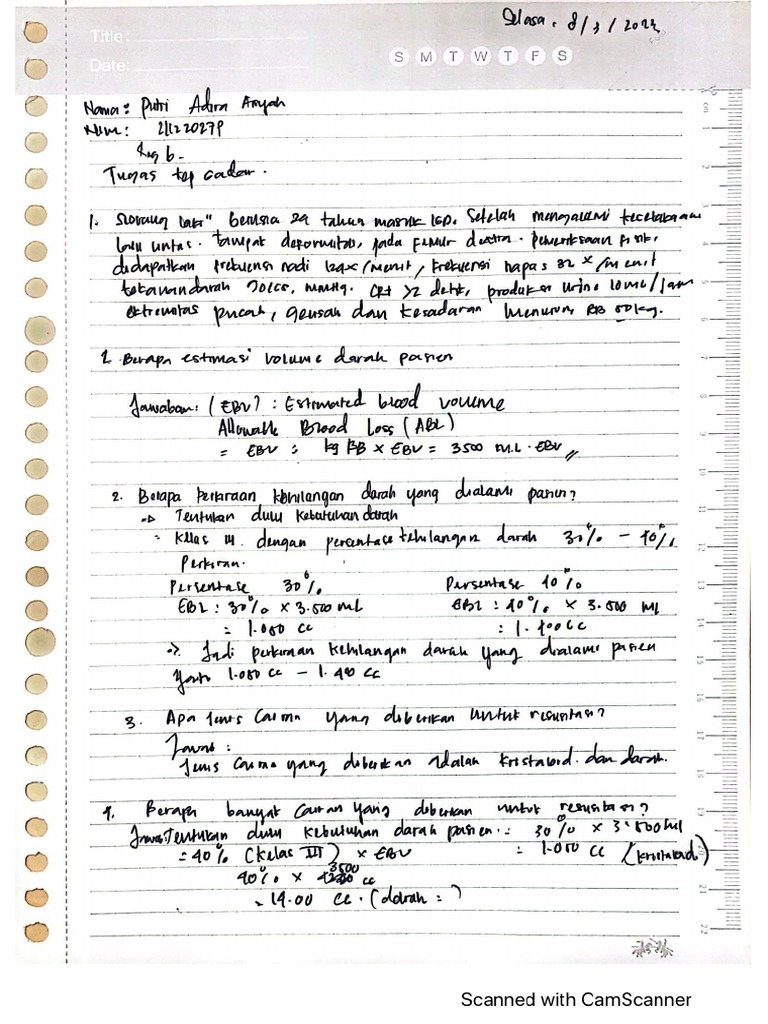 Selasa, 8/3/2022
Title:
Date:
S M T W T F S
Nama: Putri Adira Aisyah
Nim: 211220279
Tugas tep cadar.
1. Seorang laki" berusia 29 tahun masuk IGD. Setelah mengalami kecelakaan
lalu lintas. tampak deformitas, pada Femur dextra. Pemeriksaan Fisik.
didapatkan frekuensi nadi 124x/menit, frekuensi napas 32 x/menit
tekanan darah mmHg. CRT >2 detik, produksi urine 10ml/jam
ekstremitas pucat, gelisah dan kesadaran menurun, BB 50kg.
1. Berapa estimasi volume darah pasien
Jawaban: (EBV) : Estimated blood volume
Allowable Blood Loss (ABL)
= EBV = kg BB x EBV = 3500 mL . EBV //
2. Berapa perkiraan kehilangan darah yang dialami pasien?
-> Tentukan dulu kebutuhan darah
= Kelas III. dengan persentase kehilangan darah 30% - 40%
Perkiraan.
Persentase 30% Persentase 40%
EBL : 30% x 3.500 mL EBL : 40% x 3.500 ml
= 1.050 cc = 1.400 cc
-> Jadi perkiraan kehilangan darah yang dialami pasien
yaitu 1.050 cc - 1.400 cc
3. Apa jenis cairan yang diberikan untuk resusitasi?
Jawab :
Jenis cairan yang diberikan adalah kristaloid. dan darah.
4. Berapa banyak cairan yang diberikan untuk resusitasi?
Jawab: Tentukan dulu kebutuhan darah pasien : 30% x 3.500 ml
= 40% (kelas III) x EBV = 1.050 cc (kristaloid)
40% x 3500 cc
= 14.00 cc . (darah = )
Scanned with CamScanner